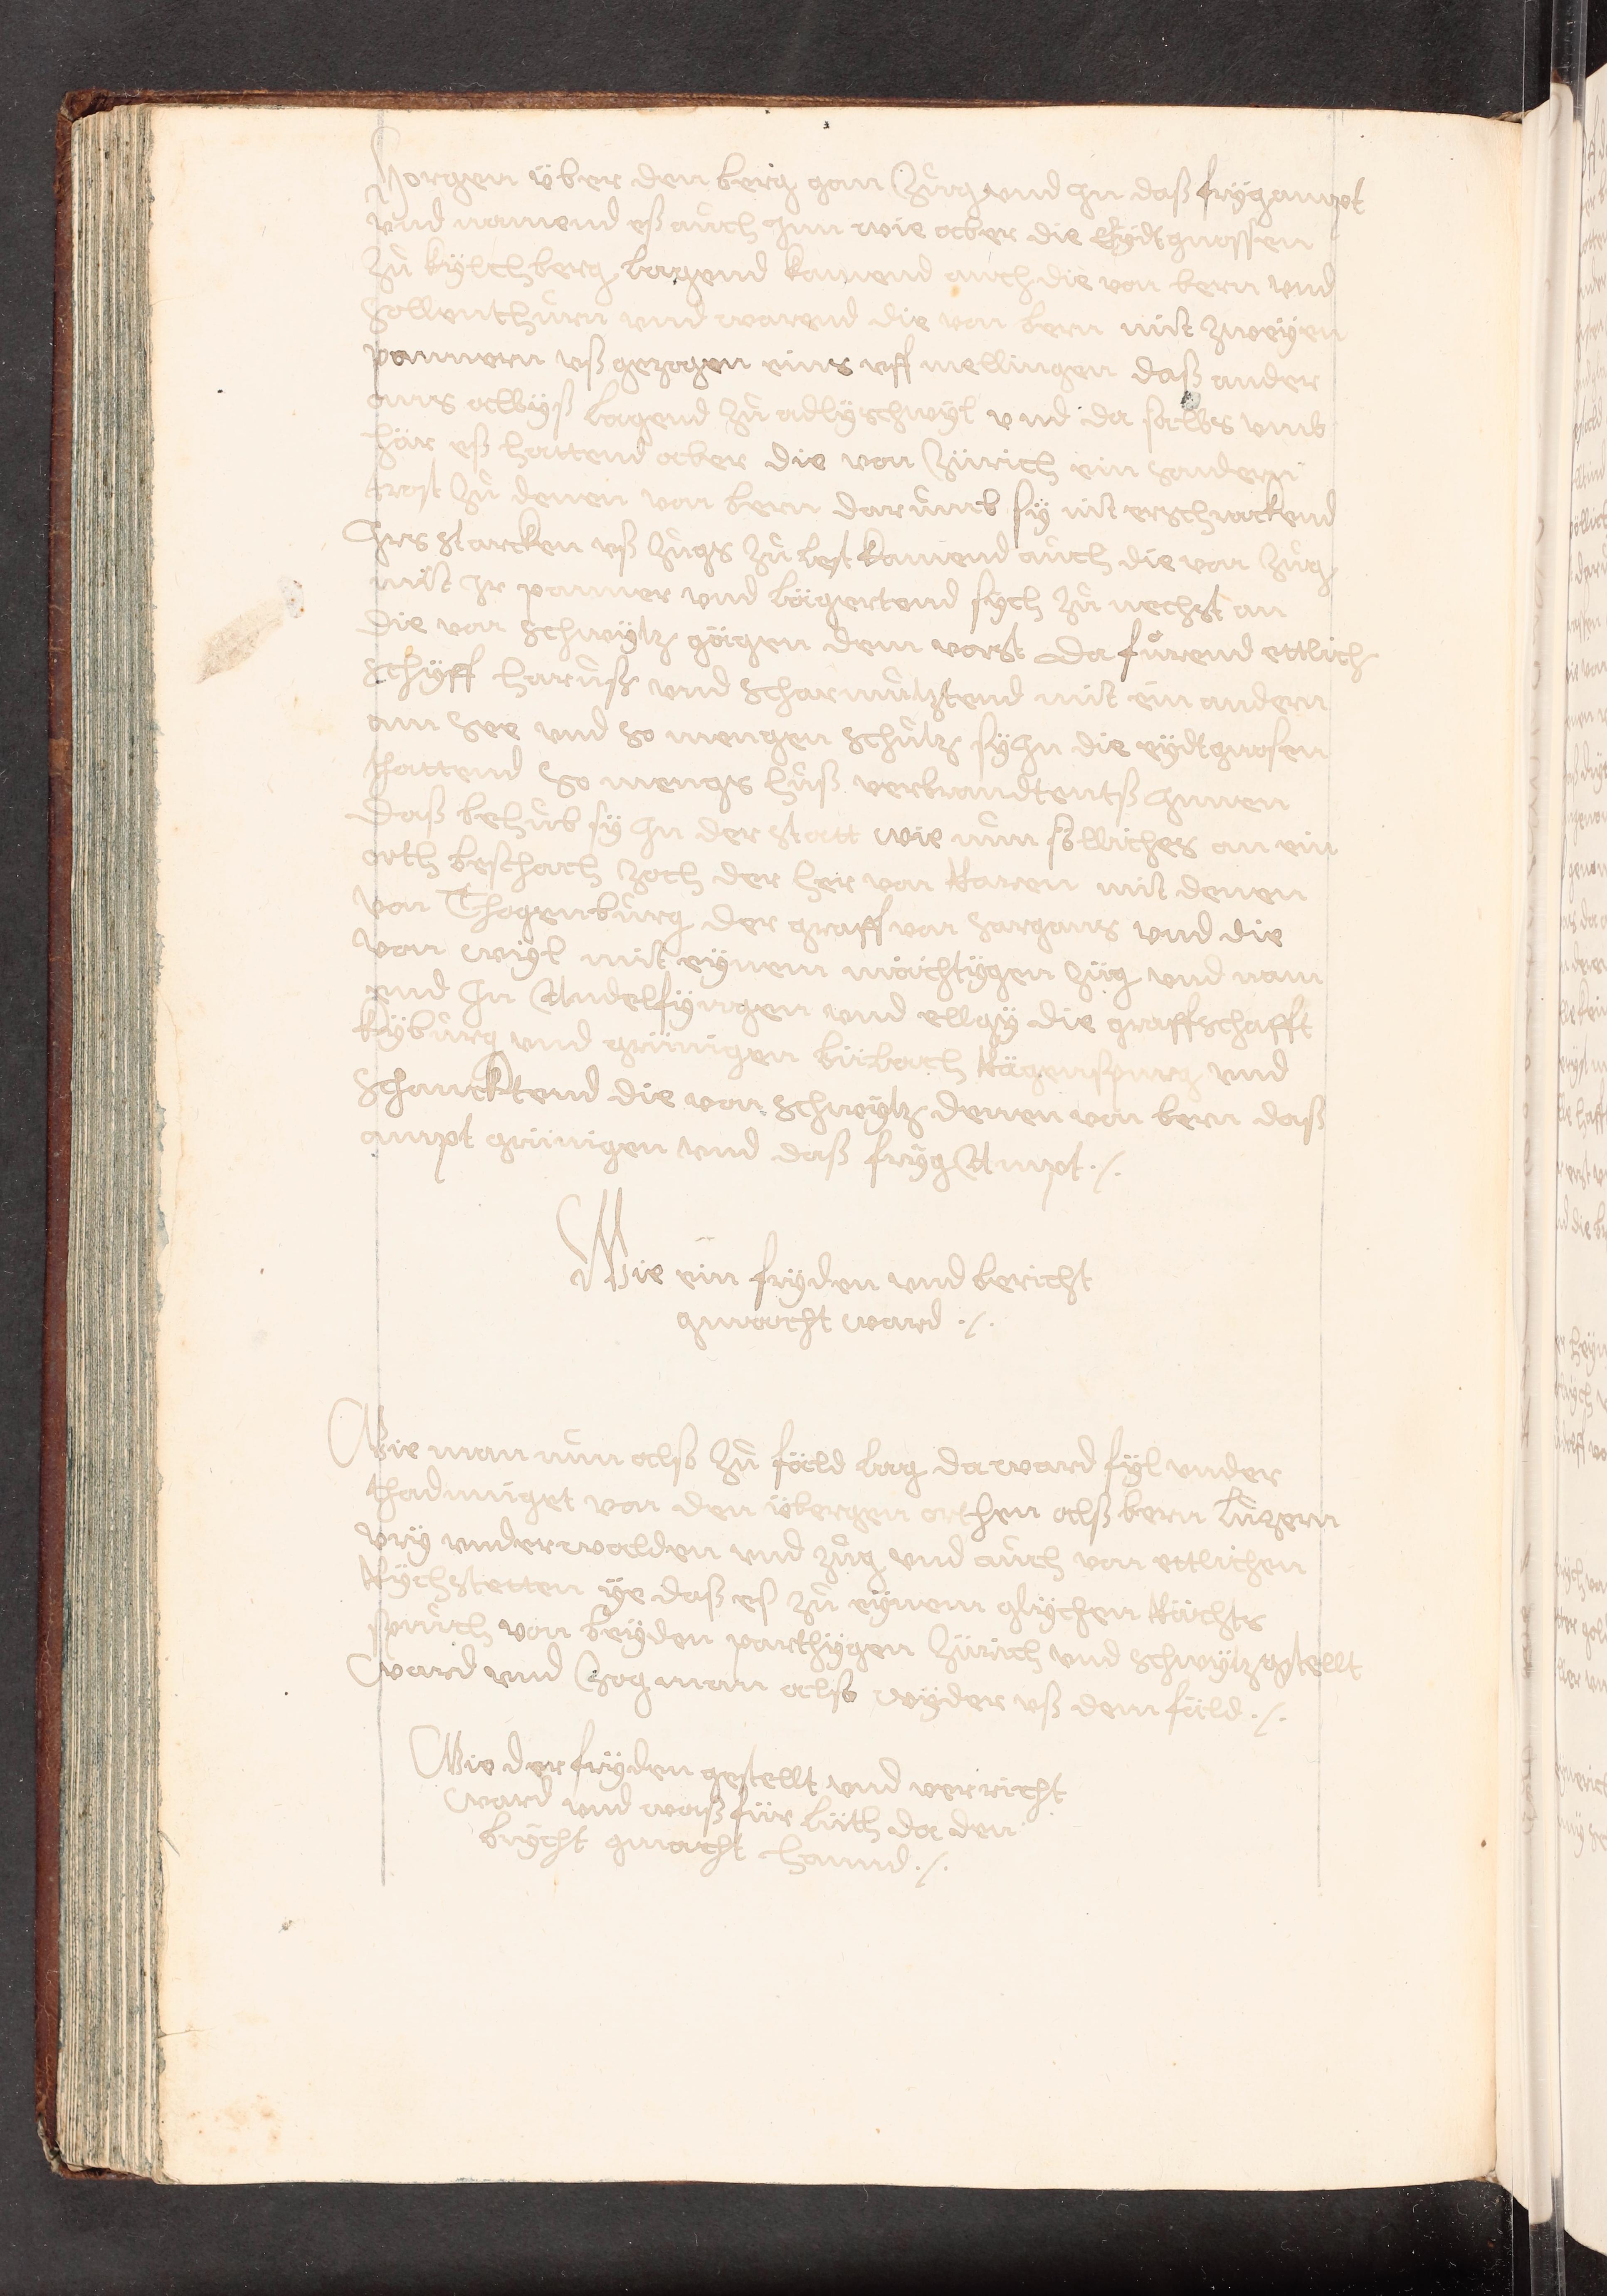 Horgen über den berg gan Zug vnd Jn daß fryg ampt
vnd namend eß auch Jnn wie aber die Eydtgnossen
zu kylchberg lagend kamend auch die von bern vnd
Sollenthurn vnd warend die von bern mit zweyen
pannern vß gezogen eins vff mellingen daß ander
ans albyß lagend zu adlyschwyl vnd da selbs vmb
här eß hattend aber die von Zürich ein sondern
trost zu denen von bern darumb sy nit erschrackend
Jrs starcken vß zugs zu lest kamend auch die von Zug
mit Jr panner vnd lägertend sych zu nechst an
die von Schwytz gägen dem vorst da furend ettlich
Schyff haruß vnd Scharmutztend mit ein andern
am See vnd so mengen schutz sy Jn die eydtgnosen
thattend So mengs huß verbrandtentß Jnnen
daß behub sy Jn der statt wie nun sölliches an ein
orth beschach zoch der her von Raren mit denen
von Thogenburg der graff von sargans vnd die
von wyl mit eynem mächtygen züg vnd nam
end Jn Andelfyngen vnd ellgy die graffschafft
kyburg vnd grünigen bülach Rägenspurg vnd
Schancktend die von Schwytz denen von bern daß
ampt grünigen vnd daß fryg Ampt ./.
Wie ein fryden vnd bericht
gmacht ward ./.
Wie man nun also zu fäld lag da ward fyl vnder
thädmiget von den übergen orthen alß bern Luzern
vry vnderwalden vnd zug vnd auch von ettlichen
Rychstetten ye daß eß zu eynem glychen Rächts
spruch von beyden parthygen Zürich vnd Schwytz gstellt
ward vnd Zog man also wyder vß dem fäld ./.
Wie der fryden gestellt vnd verricht
ward vnd waß für lüth da den
brycht gmacht hannd ./.